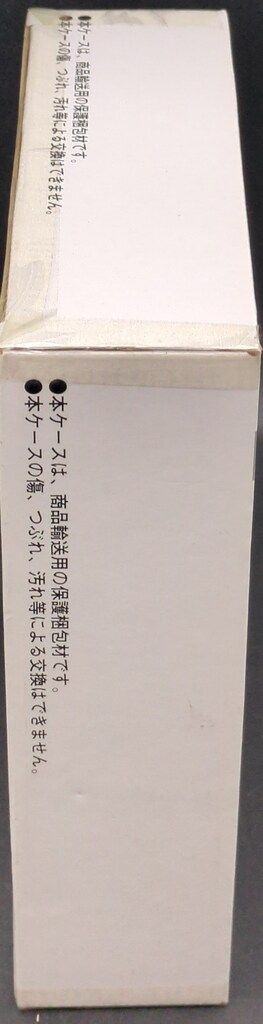 ●本ケースは、商品輸送用の保護梱包材です。
●本ケースの傷、つぶれ、汚れ等による交換はできません。
●本ケースは、商品輸送用の保護梱包材です。
●本ケースの傷、つぶれ、汚れ等による交換はできません。